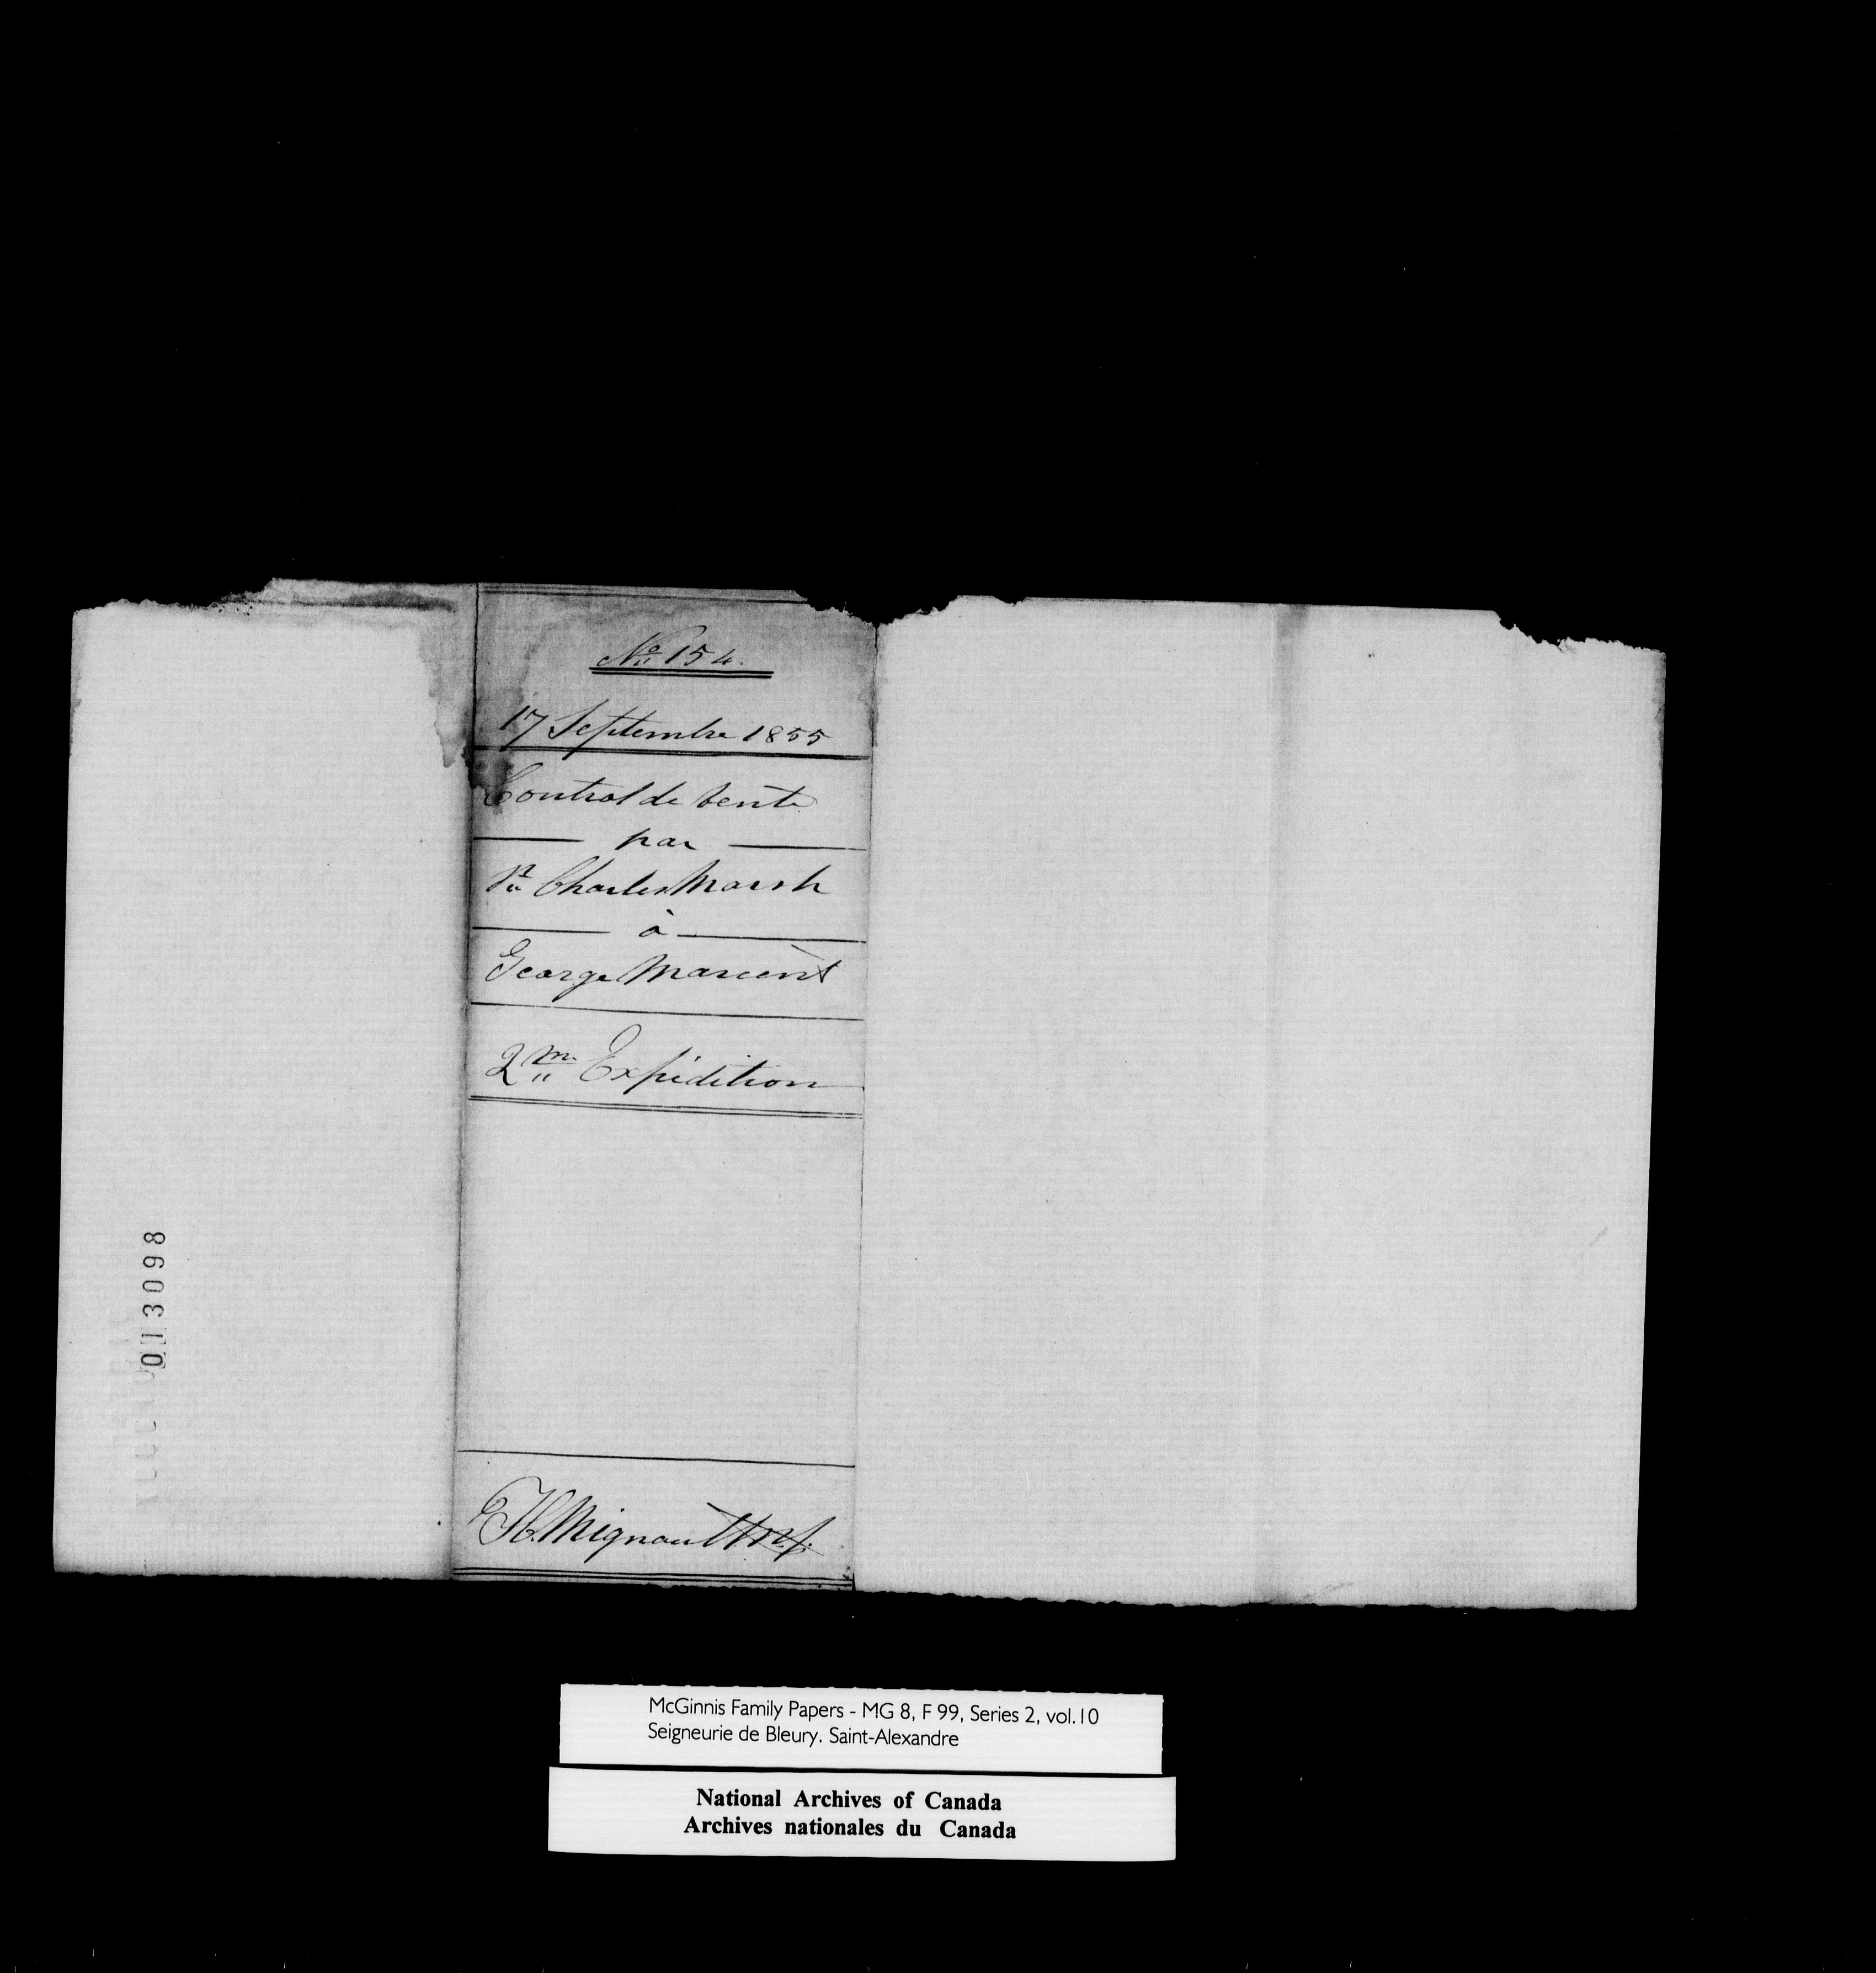 No 154.
17 Septembre 1855
Contrat de Vente
par
Sr Charles Marsh
à
George
2me Expédition
Mignault n.p.
013098
McGinnis Family Papers - MG 8, F 99, Series 2, vol.10
Seigneurie de Bleury. Saint-Alexandre
National Archives of Canada
Archives nationales du Canada